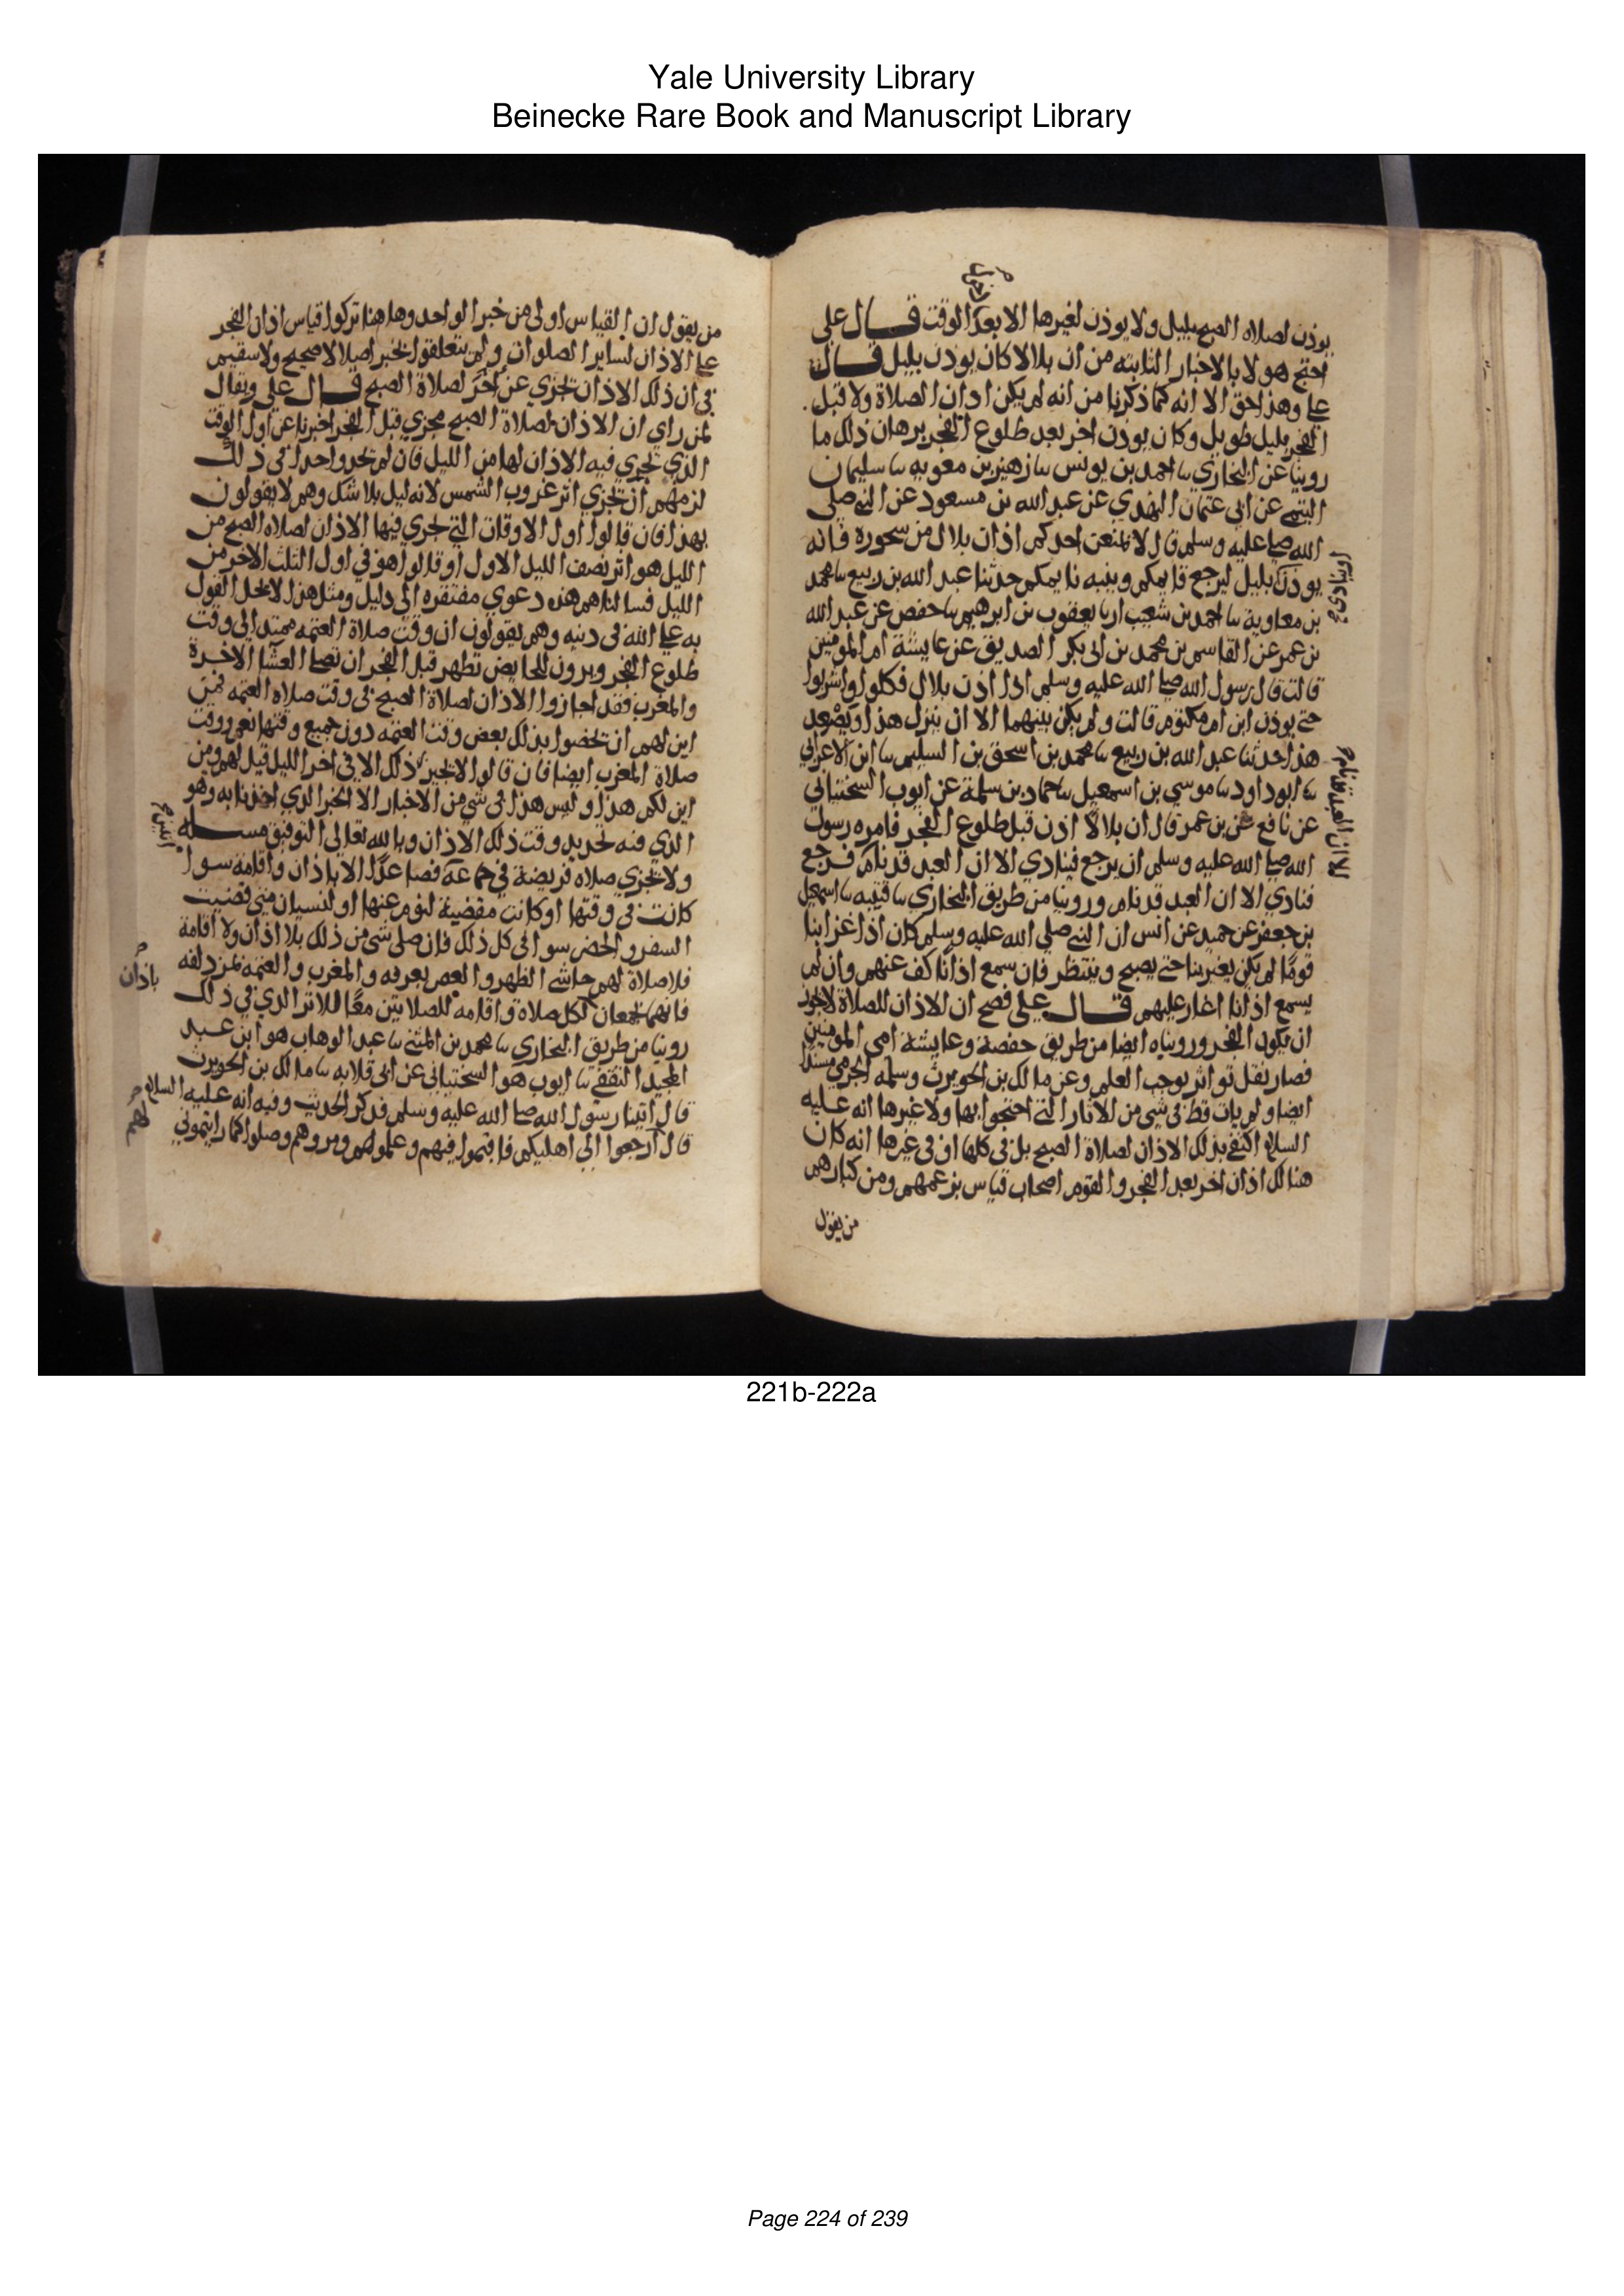 Yale University Library
Beinecke Rare Book and Manuscript Library
يوذن لصلاه الصبح بليل ولا يوذن لغيرها الا بعد الوقت قال علي
احتج هولا بالاخبار الثابته من ان بلالا كان يوذن بليل قال
علي وهذا حق الا انه كما ذكرنا من انه لم يكن اذان الصلاة ولا قبل
الفجر بليل طويل وكان يوذن اخر بعد طلوع الفجر برهان ذلك ما
روينا عن البخاري نا احمد بن يونس نا زهير بن معويه نا سليمان
التيمي عن ابي عثمان النهدي عن عبد الله بن مسعود عن النبي صلى
الله عليه وسلم قال لا يمنعن احدكم اذان بلال من سحوره فانه
يوذن بليل ليرجع قايمكم وينبه نايمكم حدثنا عبد الله بن ربيع نا محمد
بن معاوية نا احمد بن شعيب انا يعقوب بن ابرهيم نا حفص عن عبد الله
بن عمر عن القاسم بن محمد بن ابي بكر الصديق عن عايشة ام المومنين
قالت قال رسول الله صلى الله عليه وسلم اذا اذن بلال فكلوا واشربوا
حتى يوذن ابن ام مكتوم قالت ولم يكن بينهما الا ان ينزل هذا ويصعد
هذا حدثنا عبد الله بن ربيع نا محمد بن اسحق بن السليم نا ابن الاعرابي
نا ابو داود نا موسي بن اسمعيل نا حماد بن سلمة عن ايوب السختياني
عن نافع عن بن عمر قال ان بلالا اذن قبل طلوع الفجر فامره رسول
الله صلى الله عليه وسلم ان يرجع فينادي الا ان العبد قد نام فرجع
فنادي الا ان العبد قد نام وروينا من طريق البخاري نا قتيبه نا اسمعيل
بن جعفر عن حميد عن انس ان النبي صلى الله عليه وسلم كان اذا غزا بنا
قوما لم يكن يغير بنا حتى يصبح وينتظر فان سمع اذانا كف عنهم وان لم
يسمع اذانا اغار عليهم قال علي فصح ان الاذان للصلاة لا يجوز
ان يكون الفجر وروينا ه ايضا من طريق حفصة وعايشة امي المومنين
فصار نقل تواتر يوجب العلم وعن مالك بن الحويرث وسلمه الجرمي مسندا
ايضا ولم يات قط في شي من الاثار التي احتجوا بها ولا غيرها انه عليه
السلام اكتفى بذلك الاذان لصلاة الصبح بل في كلها او في غيرها انه كان
هنالك اذان اخر بعد الفجر والقوم اصحاب قياس بزعمهم ومن كبارهم
من يقول
الا ان العبد قد نام
من يقول ان القياس اولى من خبر الواحد وها هنا تركوا قياس اذان الفجر
على الاذان لساير الصلوات ولم يتعلقوا بخبر اصلا لا صحيح ولا سقيم
في ان ذلك الاذان يجزي عن اخر لصلاة الصبح قال علي ويقال
لمن راي ان الاذان لصلاة الصبح يجزي قبل الفجر اخبرنا عن اول الوقت
الذي يجزي فيه الاذان لها من الليل فان لم تحدوا حدا في ذلك
لزمهم ان يجزي اثر غروب الشمس لانه ليل بلا شك وهم لا يقولون
بهذا فان قالوا اول الاوقات التي يجزي فيها الاذان لصلاه الصبح من
الليل هو اثر نصف الليل الاول او قالوا هو في اول الثلث الاخر من
الليل فسالناهم هذه دعوي مفتقره الى دليل ومثل هذا لا يحل القول
به على الله في دينه وهم يقولون ان وقت صلاة العتمه ممتد الى وقت
طلوع الفجر ويرون للحايض تطهر قبل الفجر ان تصلي العشا الاخرة
والمغرب فقد اجازوا الاذان لصلاة الصبح في وقت صلاه العتمه فمن
اين لهم ان يخصوا بذلك بعض وقت العتمه دون جميع وقتها نعم ووقت
صلاة المغرب ايضا فان قالوا لا يجيز ذلك الا في اخر الليل قيل لهم ومن
اين لكم هذا وليس هذا في شي من الاخبار الا الخبر الذي اخذنا به وهو
الذي فيه تحديد وقت ذلك الاذان وبالله تعالى التوفيق مسله
ولا تجزي صلاه فريضة في جماعة فصاعدا الا باذان واقامه سوا
كانت في وقتها او كانت مقضية لنوم عنها او لنسيان متى قضيت
السفر والحضر سوا في كل ذلك فان صلى شي من ذلك بلا اذان ولا اقامة
فلا صلاة لهم حاشى الظهر والعصر بعرفه والمغرب والعتمه بمزدلفه
فانهما يجمعان لكل صلاة واقامه للصلاتين معا للاثر الذي في ذلك
باذان
روينا من طريق البخاري نا محمد بن المثنى نا عبد الوهاب هو ابن عبد
المجيد الثقفي نا ايوب هو السختياني عن ابي قلابه نا مالك بن الحويرث
قال اتينا رسول الله صلى الله عليه وسلم فذكر الحديث وفيه انه عليه السلام
قال ارجعوا الى اهليكم فاقيموا فيهم وعلموهم ومروهم وصلوا كما رايتموني
221b-222a
Page 224 of 239